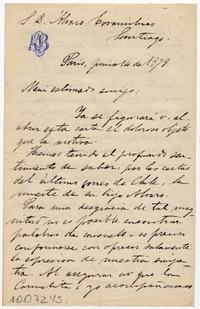 S. D. Álvaro Covarrubias
Santiago.
AB
Paris, junio 14 de 1878
Mui estimado amigo:
Ya se figurará V. al
abrir esta carta el doloroso objeto
que la motiva.
Hemos tenido el profundo sen-
timiento de saber, por las cartas
del último correo de Chile, la
muerte de su hijo Álvaro.
Para una desgracia de tal mag-
nitud no es posible encontrar
palabras de consuelo: es preciso
conformarse con ofrecer solamente
la espresion de nuestra simpa-
tía. Al asegurar a V. que la
Carmelita i yo acompañamos
10072 15.